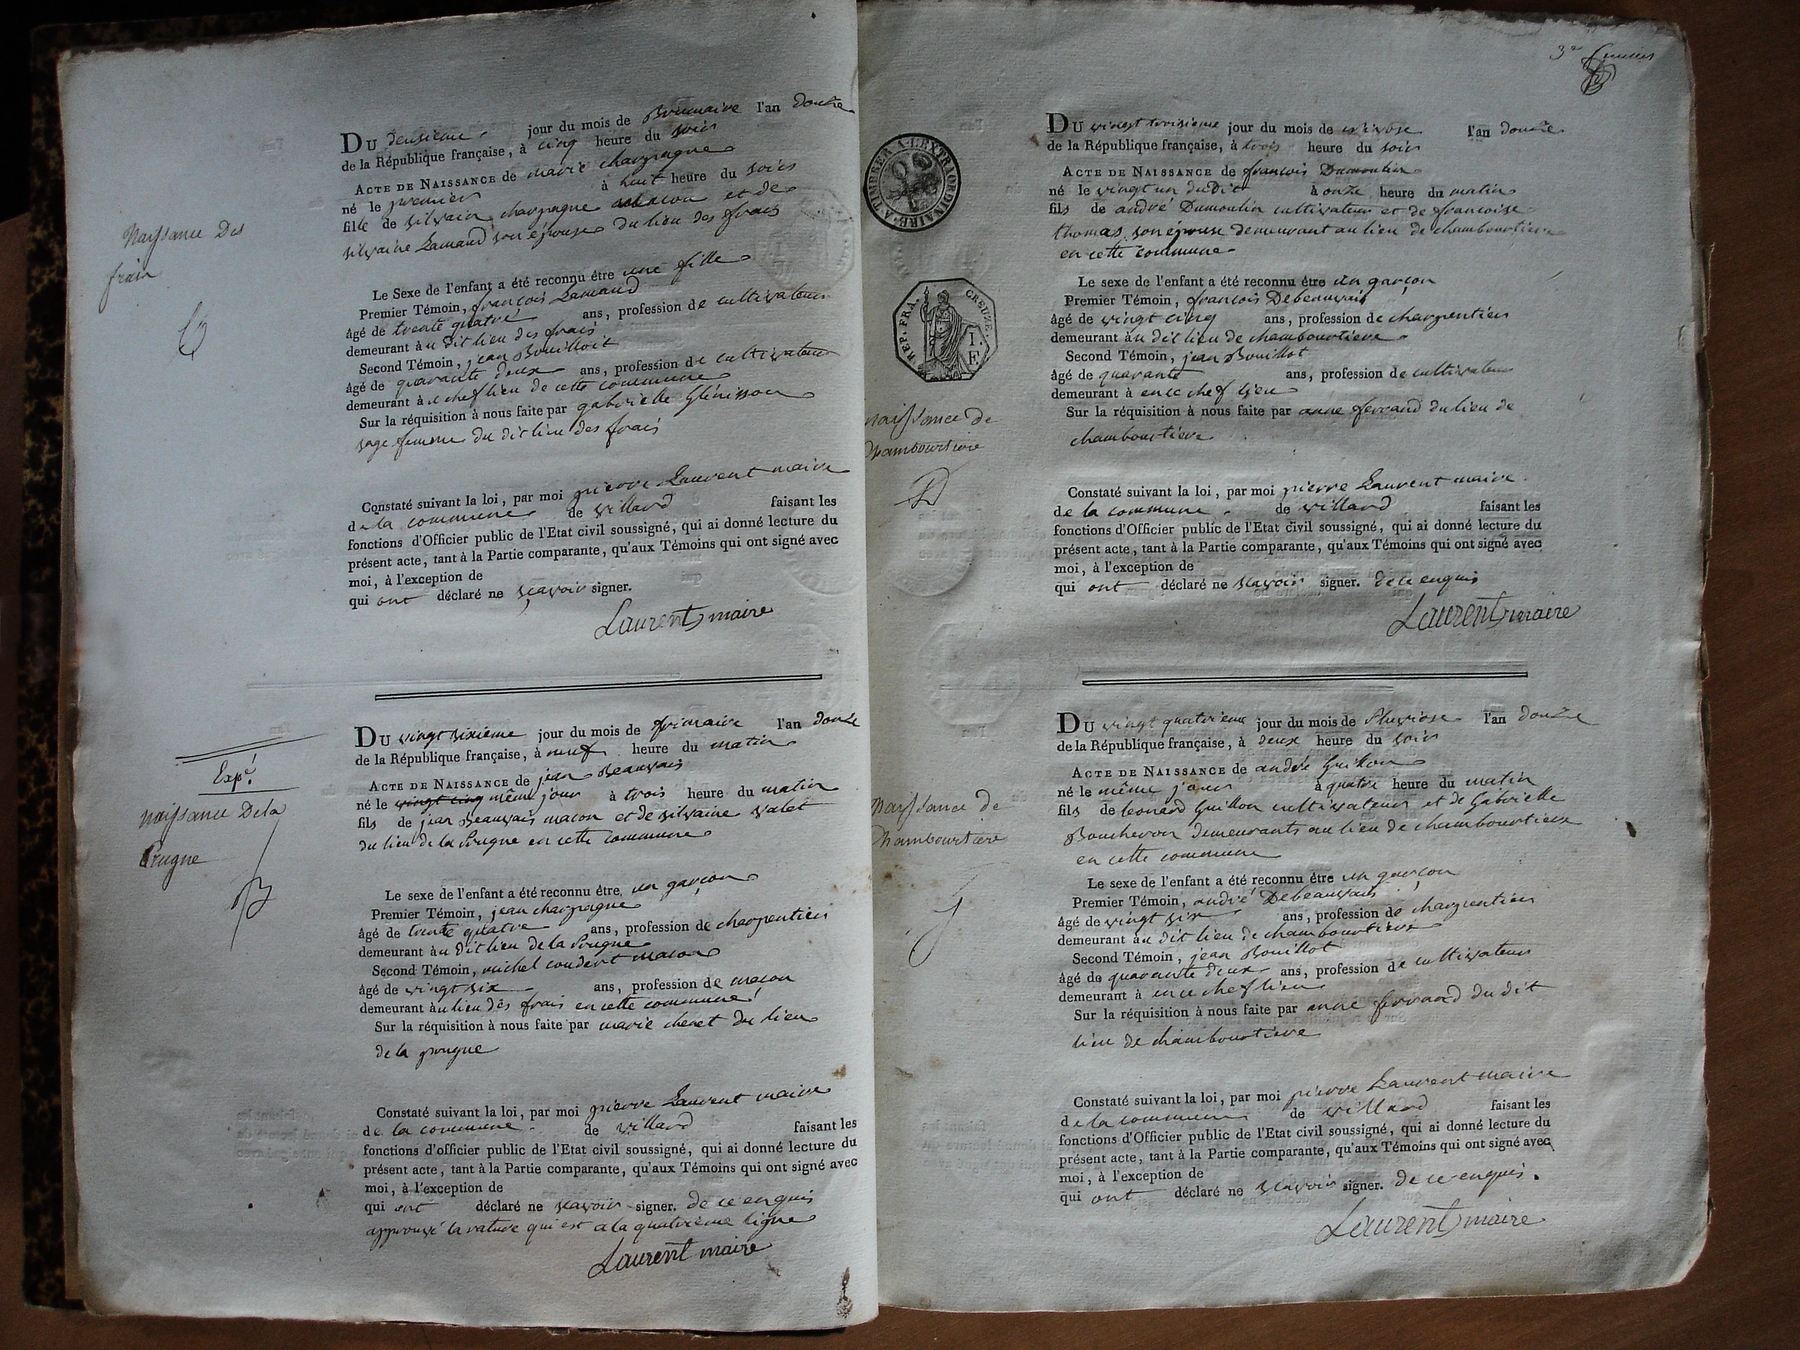 Naissance Des
frais
DU deusieme jour du mois de Brumaire l'an douze
de la République française, à cinq heure du soir
ACTE DE NAISSANCE de marie charpagne
né le premier à huit heure du soir
fille de silvain charpagne macon et de
silvaine Lamaud son épouse du lieu des frais
Le Sexe de l'enfant a été reconnu être une fille
Premier Témoin, françois Lamaud
âgé de trente quatre ans, profession de cultivateur
demeurant au dit lieu des frais
Second Témoin, jean Bouilloit
âgé de quarante deux ans, profession de cultivateur
demeurant à u chef lieu de cette commune
Sur la réquisition à nous faite par gabrielle Glénisson
sage femme du dit lieu des frais
Constaté suivant la loi, par moi pierre Laurent maire
de la commune de villard faisant les
fonctions d'Officier public de l'Etat civil soussigné, qui ai donné lecture du
présent acte, tant à la Partie comparante, qu'aux Témoins qui ont signé avec
moi, à l'exception de
qui ont déclaré ne sçavoir signer.
Laurent maire
Expé.
naissance De la
Prugne
DU vingt sixième jour du mois de frimaire l'an douze
de la République française, à neuf heure du matin
ACTE DE NAISSANCE de jean Beauvais
né le vingt cinq même jour à trois heure du matin
fils de jean Beauvais macon et de silvaine valet
du lieu de la Prugne en cette commune
Le sexe de l'enfant a été reconnu être un garçon
Premier Témoin, jean charpagne
âgé de trente quatre ans, profession de charpentier
demeurant au dit lieu de la Prugne
Second Témoin, michel coudert macon
âgé de vingt six ans, profession de macon
demeurant au lieu dês frais en cette commune
Sur la réquisition à nous faite par marie chenet du lieu
de la prugne
Constaté suivant la loi, par moi pierre Laurent maire
de la commune de villard faisant les
fonctions d'officier public de l'Etat civil soussigné, qui ai donné lecture du
présent acte, tant à la Partie comparante, qu'aux Témoins qui ont signé avec
moi, à l'exception de
qui ont déclaré ne sçavoir signer. de ce enquis
approuvé la rature qui est a la quatrième ligne
Laurent maire
3e
A TIMBRER A L'EXTRAORDINAIRE
REP. FRA. CREUZE
naissance de
chambourtiere
DU vingt troisieme jour du mois de nivose l'an douze
de la République française, à trois heure du soir
ACTE DE NAISSANCE de françois Dumoulin
né le vingt un du Dit à onze heure du matin
fils de andré Dumoulin cultivateur et de françoise
thomas son epouse demeurant au lieu de chambourtiere
en cette commune
Le Sexe de l'enfant a été reconnu être un garçon
Premier Témoin, françois Debeauvais
âgé de vingt cinq ans, profession de charpentier
demeurant au dit lieu de chambourtiere
Second Témoin, jean Bouillot
âgé de quarante ans, profession de cultivateur
demeurant à en ce chef lieu
Sur la réquisition à nous faite par anne ferrand du lieu de
chambourtiere
Constaté suivant la loi, par moi pierre Laurent maire
de la commune de villard faisant les
fonctions d'Officier public de l'Etat civil soussigné, qui ai donné lecture du
présent acte, tant à la Partie comparante, qu'aux Témoins qui ont signé avec
moi, à l'exception de
qui ont déclaré ne sçavoir signer. de ce enquis
Laurent maire
Naissance de
chambourtiere
DU vingt quatrieme jour du mois de Pluviose l'an douze
de la République française, à deux heure du soir
ACTE DE NAISSANCE de andré Guillon
né le même jour à quatre heure du matin
fils de leonard Guillon cultivateur et de Gabrielle
Boucheron demeurants au lieu de chambourtiere
en cette commune
Le sexe de l'enfant a été reconnu être un garçon
Premier Témoin, andré Debeauvais
âgé de vingt six ans, profession de charpentier
demeurant au dit lieu de chambourtiere
Second Témoin, jean Bouillot
âgé de quarante deux ans, profession de cultivateur
demeurant à en ce chef lieu
Sur la réquisition à nous faite par anne ferrand du dit
lieu de chambourtiere
Constaté suivant la loi, par moi pierre Laurent maire
de la commune de villard faisant les
fonctions d'Officier public de l'Etat civil soussigné, qui ai donné lecture du
présent acte, tant à la Partie comparante, qu'aux Témoins qui ont signé avec
moi, à l'exception de
qui ont déclaré ne sçavoir signer. de ce enquis.
Laurent maire